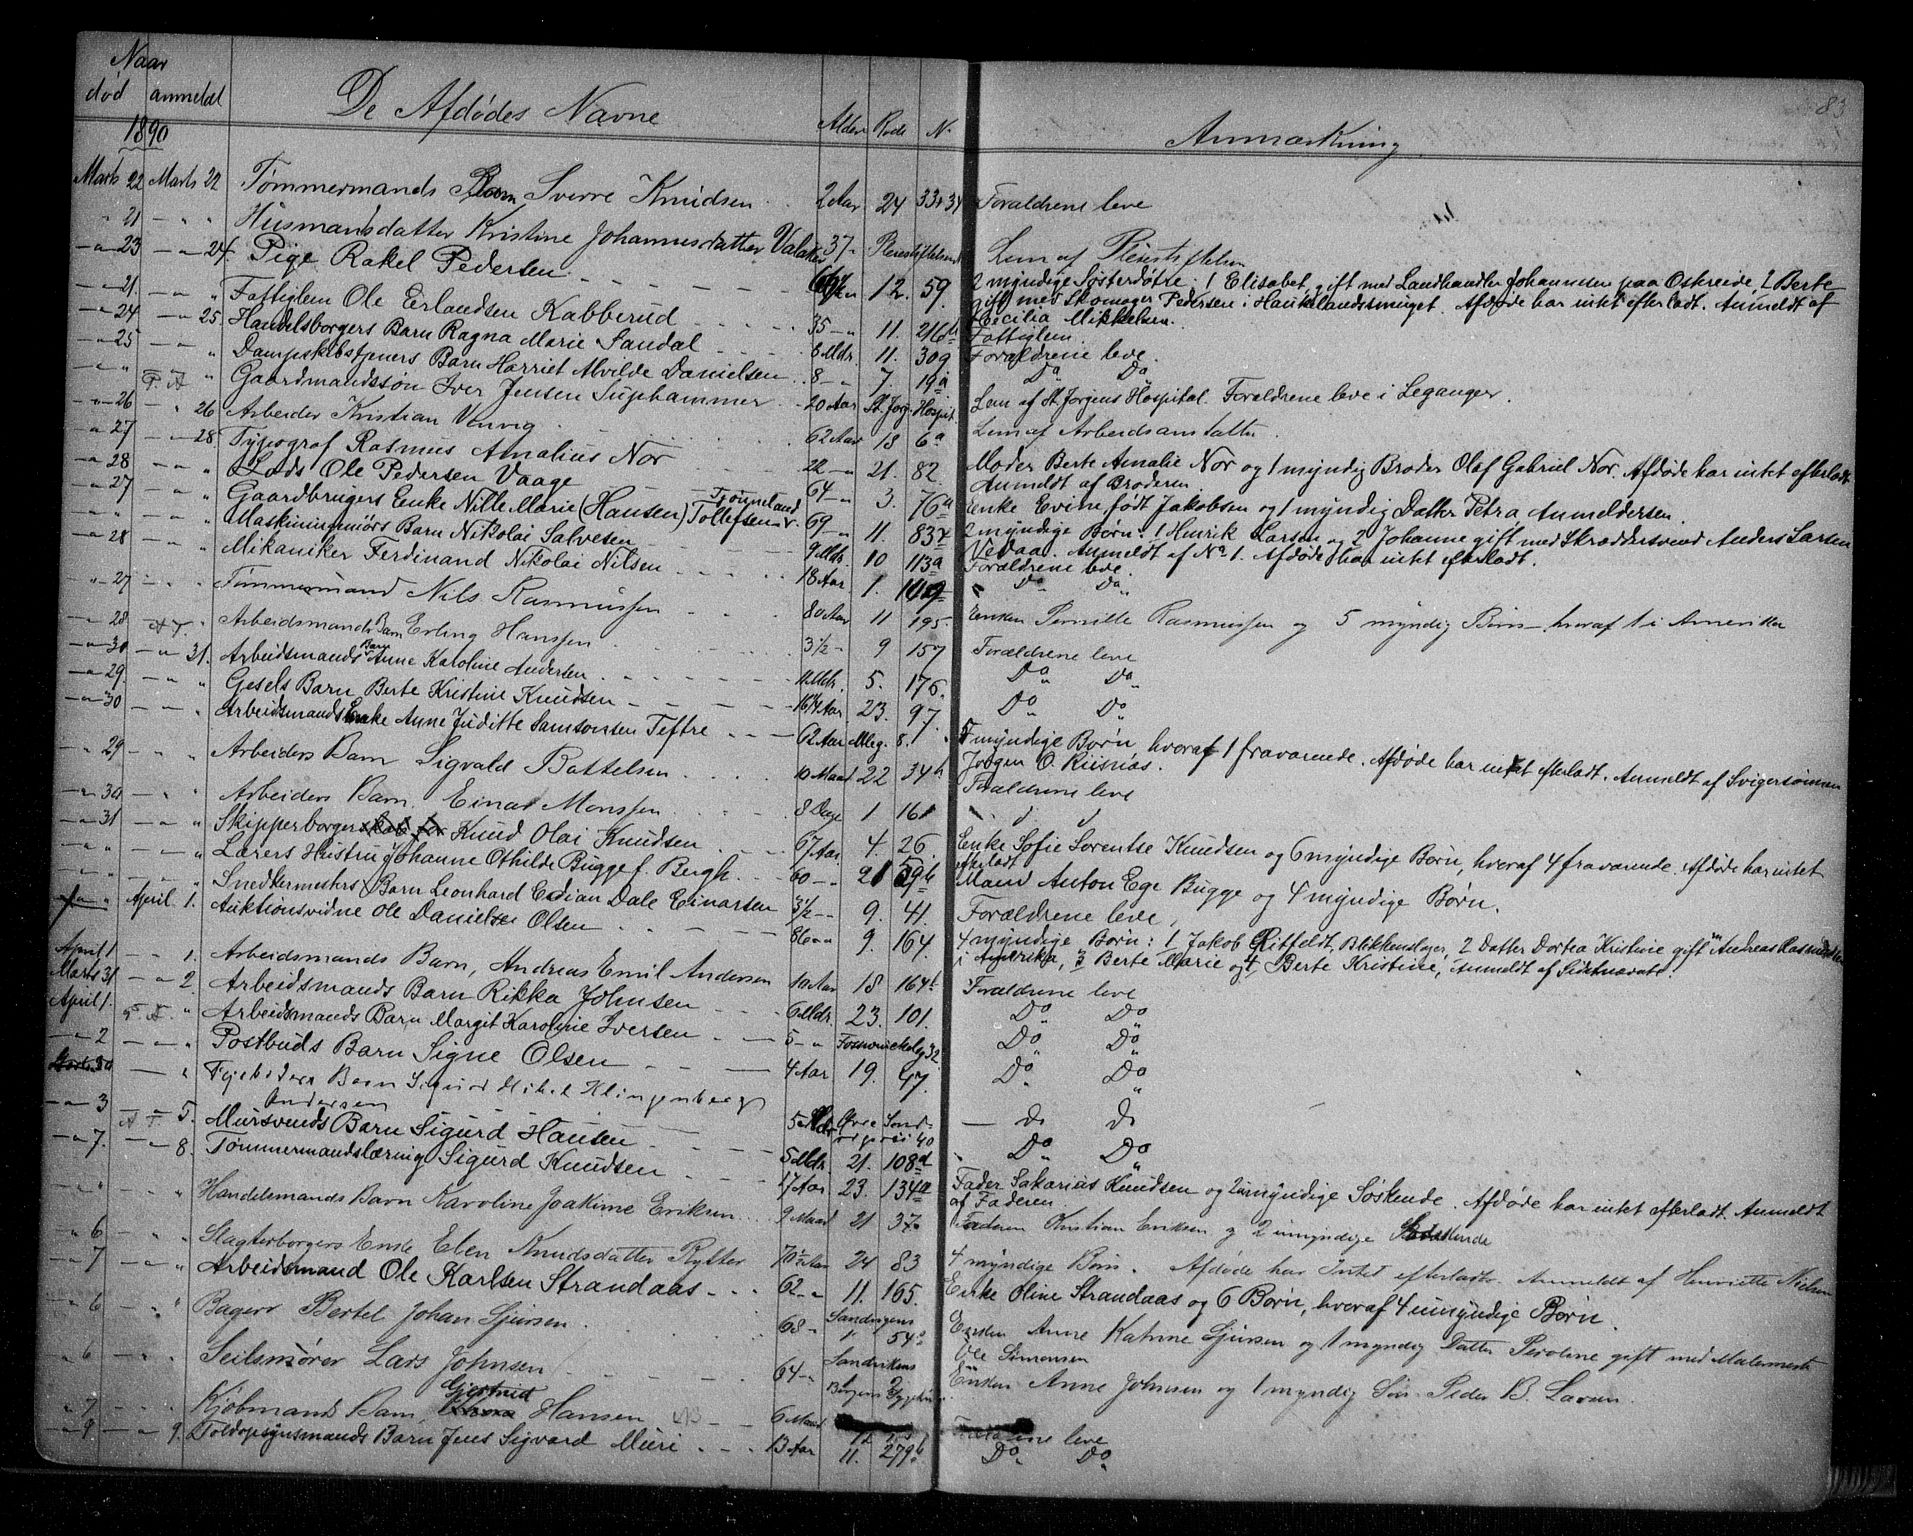 83
Naar
død anmeldt De Afdødes Navne Alder Rode N. Anmærkning
1890
Marts 22 Marts 22 Tømmermands Barn Sverre Knudsen 2 Aar 24 33+34 Forældrene leve
" 21 - " " Husmandsdatter Kristine Johannesdatter Valaker 37 - Pleiestiftelsen Lem af Pleiestiftelsen
- " 23 - " 24. Pige Rakel Pedersen 12. 59. 2 myndige Søsterdøtre: 1 Elisabet, gift med Landhandler Johannesen paa Oskreide, 2 Berte
gift med Skomager Pedersen i Haukelandsmuget. Afdøde har intet efterladt. Anmeldt af
Cecilia Mikkelsen.
- " 21. - " " Fattiglem Ole Erlandsen Kabberud 35 - " 11. 216 b Fattiglem.
- " 24 - " 25. Handelsborgers Barn Ragna Marie Sandal 8 Mdr. 11. 309 Forældrene leve.
- " 25 - " " Dampskibsfyrers Barn Harriet Alvilde Danielsen 8 - " 7. 19 a Do Do
- " " F. A " Gaardmandssøn Iver Jensen Supehammer 20 Aar St. Jørg. Hospit. Lem af St. Jørgens Hospital. Forældrene leve i Leganger.
- " 26 - " 26 Arbeider Kristian Venvig 62 Aar 18 6 a Lem af Arbeidsanstalten
- " 27 - " 28. Typograf Rasmus Amalius Nor 22 - " 21. 82. Moder Berte Amalie Nor og 1 myndig Broder Olaf Gabriel Nor. Afdøde har intet efterladt.
Anmeldt af Broderen.
- " 28 - " " Lods Ole Pedersen Vaage 64 - " 3. 76 a Enke Evine født Jakobsen og 1 myndig Datter Petra Anmeldersen.
- " 27 - " " Gaardbrugers Enke Nille Marie (Hansen) Tollefsen 69 - " 11. 837 2 myndige Børn: 1 Henrik Larsen og 2 Johanne gift med Skræddersvend Anders Larsen
Vedaa. Anmeldt af No 1. Afdøde har intet efterladt.
" " - " " Maskiningeniørs Barn Nikolai Salvesen 9 Mdr. 10 113 a Forældrene leve.
- " 28 - " " Mikaniker Ferdinand Nikolai Nilsen 18 Aar 1. Do Do
- " 27 - " " Tømmermand Nils Rasmussen 80 Aar 11 195 Enken Pernille Rasmussen og 5 myndig Børn - hvoraf 1 i Amerika
- " 28 A F. " Arbeidsmands Barn Erling Hanssen 3 1/2 - 9 157 Forældrene leve
- " 30 - " 31. Arbeidsmands Barn Anne Karoline Andersen 11 Mdr. 5. 176. Do Do
- " 29. - " " Gesels Barn Berte Kristine Knudsen 23. 97. Do Do
- " 30 - " " Arbeidsmands Enke Anne Juditte Samsonsen Teftre 62 Aar Mlleg. 8. 5 myndige Børn, hvoraf 1 fraværende. Afdøde har intet efterladt. Anmeldt af Svigersønnen
Jørgen O. Risnæs.
- " 29 - " " Arbeiders Barn Sigvald Battelsen 10 Maad 22 34 b Forældrene leve
- " 30 " Arbeiders Barn Einar Monssen 8 Dage 1 161 d d
- " 31 - " " Skipperborger Knud Olai Knudsen 67 Aar. 4. 26. Enke Sofie Sørentse Knudsen og 6 myndige Børn, hvoraf 4 fraværende. Afdøde har intet
efterladt
- " " - " " Lærers Hustru Johanne Othilde Bugge f. Bergh. 60 - " 21 59 b Mand Anton Ege Bugge og 4 myndige Børn.
- " " - " " Snedkermesters Barn Leonhard Edian Dale Einarsen 3 1/2 - " 9. 41. Forældrene leve,
- " - April 1. Auktionsvidne Ole Danielsen Olsen 86 - " 9. 164. 4 myndige Børn: 1 Jakob Ritfeldt, Blikkenslager, 2 Datter Dortea Kristine gift m Andreas Rasmussen
i Amerika, 3 Berte Marie og 4 Berte Kristine, Anmeldt af Sidstnævnte.
April 1 - " 1. Arbeidsmands Barn, Andreas Emil Andersen 10 Aar 18 164 b Forældrene leve
Marts 31 - " 2. Arbeidsmands Barn Rikka Johnsen 6 Mdr. 23. 101. Do Do
April 1. F. A. " Arbeidsmands Barn Margit Karoline Iversen 5 - " 32. Do Do
- " 2 - " " Postbuds Barn Signe Olsen 4 Aar 19. 97. Do Do
" Barn Sigurd Mikal Klingenberg
Andersen - do do
- " 3 A F 5. Mursvends Barn Sigurd Hansen 5 Mdr. 21. 108 d Do Do
- " 7. - " 8. Tømmermandslæring Sigurd Knudsen 17 Aar 23. 134 a Fader Sakarias Knudsen og 2 umyndige Søskende. Afdøde har intet efterladt. Anmeldt
af Faderen
" " " Handelsmands Barn Karoline Joakime Eriksen 9 Maad 21 37 a Faderen Kristian Eriksen og 2 umyndige Søskende
" 6 - " " Slagterborgers Enke Elen Knudsdatter Rytter 70 1/2 Aar 24 83 4 myndige Børn. Afdøde har Intet efterladt. Anmeldt af Henriette Nielsen
- " 7 - " " Arbeidsmand Ole Karlsen Strandaas 62 - " 11. 165. Enke Oline Strandaas og 6 Børn, hvoraf 4 umyndige Børn.
- " 6 - " " Bager Bertel Johan Sjursen 68 - Sandvigens 54 a Enken Anne Katrine Sjursen og 1 myndig Datter Peroline gift med Malermester
Ole Simonsen
" 6 - " " Seilsmører Lars Johnsen 64 - Sandvikens Enken Anne Johnsen og 1 myndig Søn Peder B. Larsen.
" 7 - " " Kjøbmands Barn, Gjertrud Hansen 6 Maad Forældrene leve
- " 9 - " 9. Toldopsynsmands Barn Jens Sigvard Muri 13 Aar 11. 279 b Do Do